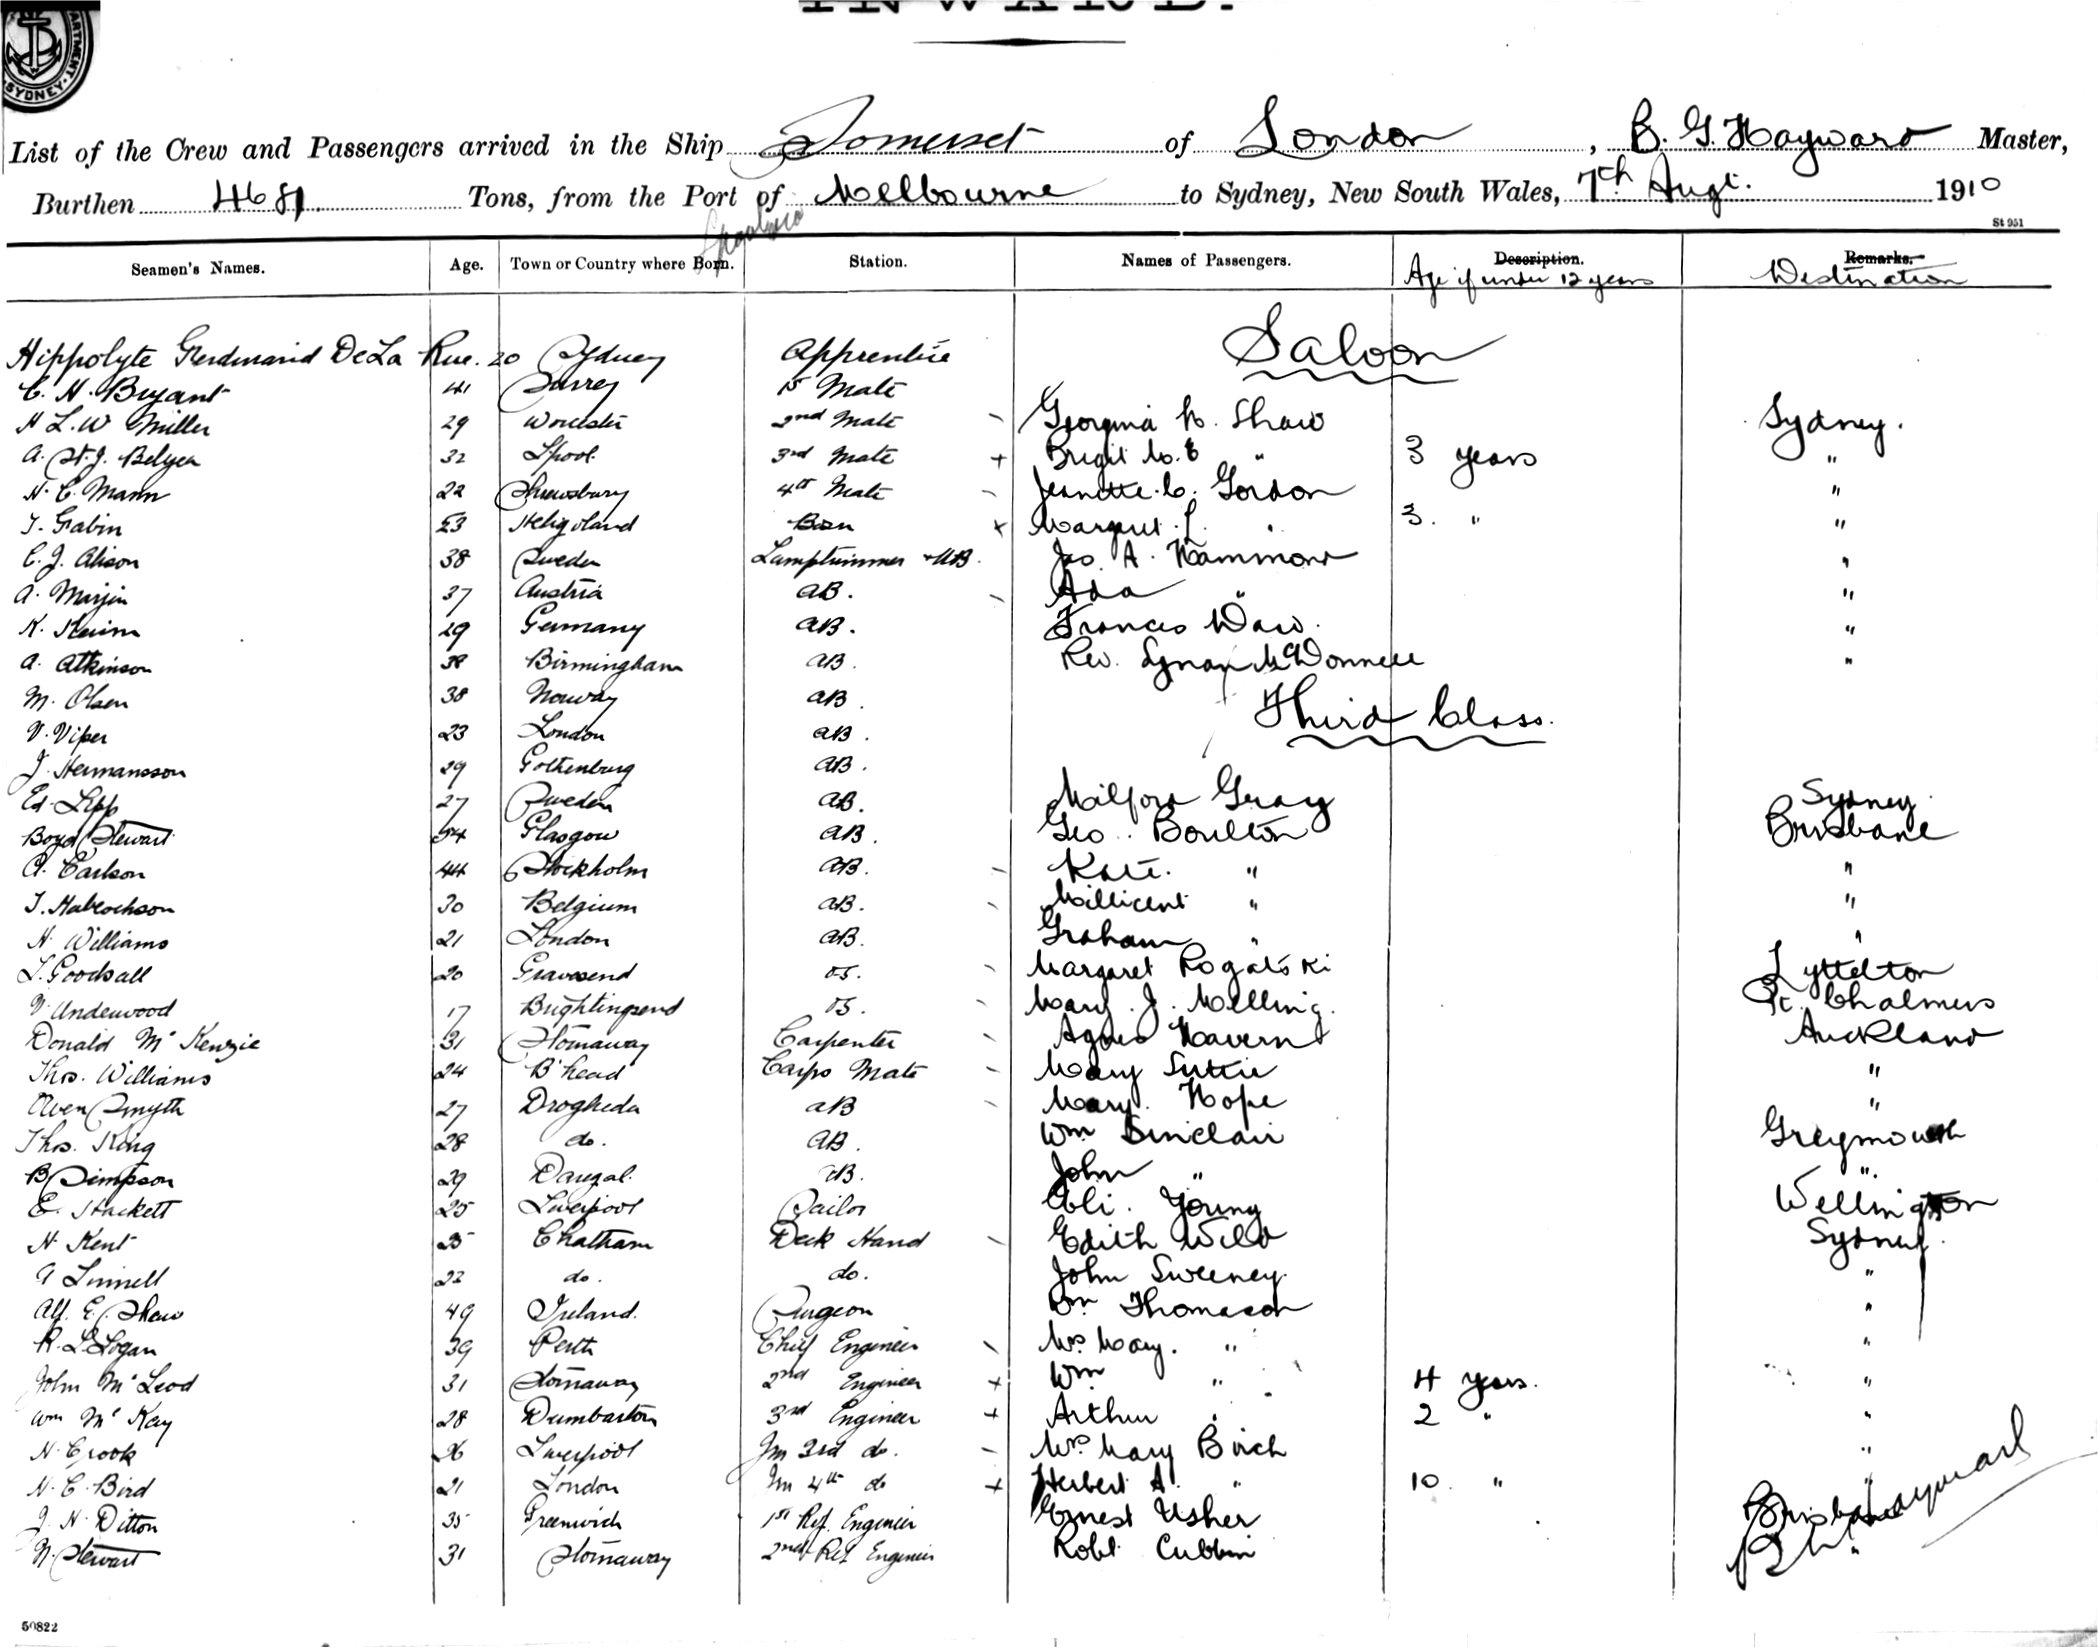 INWARD.
DEPARTMENT. SYDNEY.
List of the Crew and Passengers arrived in the Ship Somerset of London, B. G. Hayward Master,
Burthen 4681 Tons, from the Port of Melbourne to Sydney, New South Wales, 7th Augt. 1910
St 951
Seamen's Names. Age. Town or Country where Born. Station. Names of Passengers. Description. Remarks.
Age if under 12 years Destination
Saloon
Hippolyte Ferdinand De La Rue. 20 Sydney Apprentice
C. H. Bryant 41 Surrey 1st Mate
H L. W Miller 29 Worcester 2nd Mate - Georgina M. Shaw Sydney.
A. St. J. Belyea 32 L'pool. 3rd Mate + Brigit M. E " 3 years "
H. C. Mann 22 Shrewsbury 4th Mate - Jeanette. C. Gordon "
T. Grabin 53 Heligoland Bosn x Margaret. L. " 3. " "
C. J. Alison 38 Sweden Lamptrimmer + AB. Jas. A. Hammond "
A. Marjin 37 Austria AB. - Ada " "
K. 29 Germany AB. Francis Daw. "
A. Atkinson 38 Birmingham AB. Rev. McDonnell "
M. Olsen 38 Norway AB.
Third Class.
V. Viper 23 London AB.
J. Hermansson 29 Gothenburg AB.
Ed. Lepp 27 Sweden AB. Milford Gray Sydney.
Boyd Stewart 54 Glasgow AB. Geo. Boulton Brisbane
A. Carlson 44 Stockholm AB. - Kate. " "
T. 30 Belgium AB. - Millicent " "
H. Williams 21 London AB. Graham " "
L. Goodsall 20 Gravesend OS. - Margaret Rogatski Lyttelton
Underwood 17 Brightingsend OS. - Mary. J. Melling. Pt. Chalmers
Donald McKenzie 31 Stornaway Carpenter - Agnes Havern Auckland
Thos. Williams 24 B'head Carps Mate - Mary Suttie "
Owen Smyth 27 Drogheda AB - Mary. Hope "
Thos. King 28 do. AB. Wm Sinclair Greymouth
B Simpson 29 AB. John " "
E. Hackett 25 Liverpool Sailor Eli. Young Wellington
H Kent 25 Chatham Deck Hand - Edith Wild Sydney.
A Linnell 22 do. do. John Sweeney. "
Alf. E. Shaw 49 Ireland. Surgeon Wm Thomason "
R. L. Logan 39 Perth Chief Engineer - Mrs. Mary. " "
John McLeod 31 Stornaway 2nd Engineer + Wm " 4 years. "
Wm McKay 28 Dumbarton 3rd Engineer + Arthur " 2 " "
H. Crook 26 Liverpool Jn 3rd do. - Mrs Mary Birch "
H. C. Bird 21 London Jn 4th do + Herbert A. " 10. " "
J. H. Ditton 35 Greenwich 1st Ref. Engineer Ernest Usher Brisbane
N. Stewart 31 Stornaway 2nd Ref Engineer Robt. Cubbin "
B. G. Hayward
50822